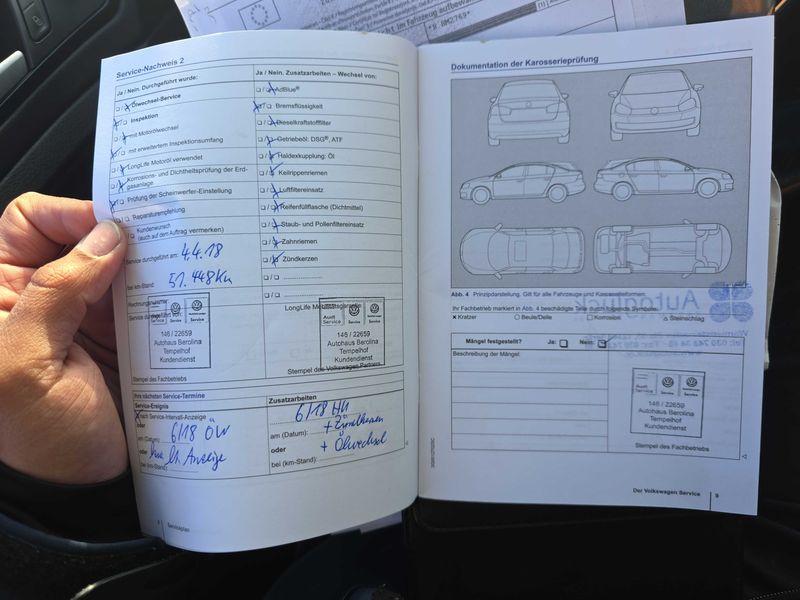 Service-Nachweis 2
Ja / Nein. Durchgeführt wurde:
Ölwechsel-Service
Inspektion
mit Motorölwechsel
mit erweitertem Inspektionsumfang
LongLife Motoröl verwendet
Korrosions- und Dichtheitsprüfung der Erdgasanlage
Prüfung der Scheinwerfer-Einstellung
Reparaturempfehlung
Kundenwunsch
(auch auf dem Auftrag vermerken)
Service durchgeführt am: 4.4.18
bei km-Stand: 51.448 Km
Rechnungsnummer
Service durchgeführt
Audi
Service
Service
Service
146 / 22659
Autohaus Berolina
Tempelhof
Kundendienst
Stempel des Fachbetriebs
Ja / Nein. Zusatzarbeiten – Wechsel von:
AdBlue®
Bremsflüssigkeit
Dieselkraftstofffilter
Getriebeöl: DSG®, ATF
Haldexkupplung: Öl
Keilrippenriemen
Luftfiltereinsatz
Reifenfüllflasche (Dichtmittel)
Staub- und Pollenfiltereinsatz
Zahnriemen
Zündkerzen
LongLife Mobilitätsgarantie
Audi
Service
146 / 22659
Autohaus Berolina
Tempelhof
Kundendienst
Stempel des Volkswagen Partners
Ihre nächsten Service-Termine
Service-Ereignis
nach Service-Intervall-Anzeige
oder
am (Datum): 6/18 ÖW
oder
Anzeige
bei (km-Stand):
Zusatzarbeiten
6/18 HU
am (Datum):
oder + Ölwechsel
bei (km-Stand):
8 Serviceplan
Dokumentation der Karosserieprüfung
Abb. 4 Prinzipdarstellung. Gilt für alle Fahrzeuge und Karosserieformen.
Ihr Fahrbetrieb markiert in Abb. 4 beschädigte Teile durch folgende Symbole:
x Kratzer
Beule/Delle
Korrosion
Steinschlag
Mängel festgestellt? Ja: Nein:
Beschreibung der Mängel:
Audi
Service
Service
Service
146 / 22659
Autohaus Berolina
Tempelhof
Kundendienst
Stempel des Fachbetriebs
Der Volkswagen Service 9